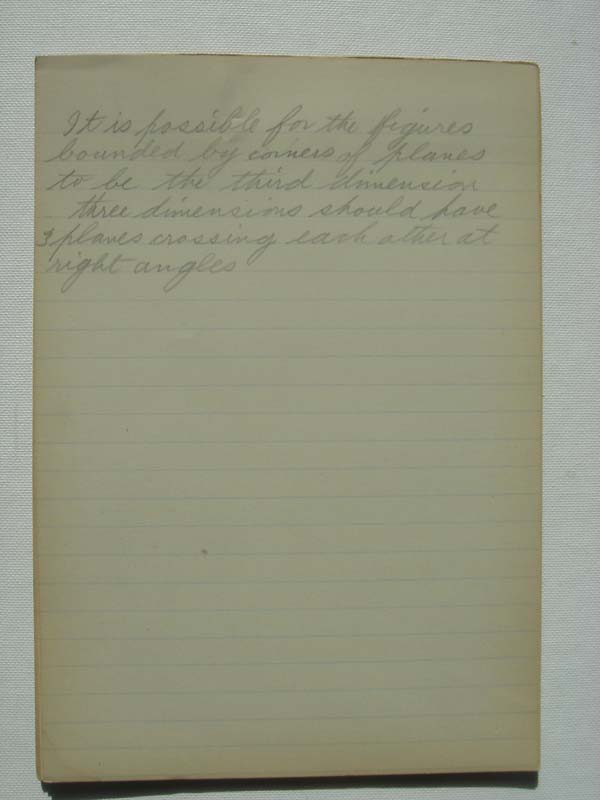 It is possible for the figures
bounded by corners of planes
to be the third dimension
three dimensions should have
3 planes crossing each other at
right angles